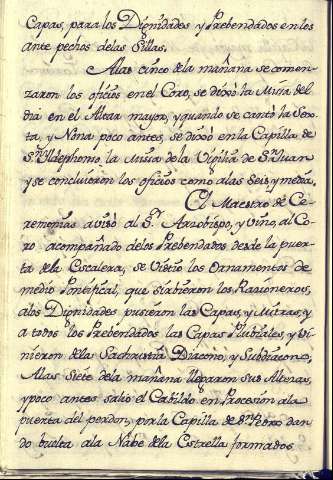 Capas, para los Dignidades y Prebendados en los
ante pechos delas Sillas.
Alas cinco dela mañana se comen-
zaron los oficios en el Coro, se dixo la Misa del
dia en el Altar mayor, y quando se cantò la Sex-
ta, y Nona poco antes, se dixo en la Capilla de
Sn. Yldephonso la Missa de la Vigilia de Sn. Juan
y se concluieron los oficios como alas Seis y media,
El Maestro de Ce-
remonias avisò al Sr. Arzobispo, y vino, al Co-
ro acompañado delos Prebendados, desde la puer-
ta de la Escalera, se vistio los Ornamentos de
medio Pontifical, que sirbieron los Razioneros,
alos Dignidades pusieron las Capas, y Mitras, y
a todos los Prebendados las Capas Pluviales, y vi-
nieron dela Sachristia Diacono, y Subdiacono,
Alas Siete dela mañana llegaron sus Altezas,
y poco antes saliò el Cabildo en Procesion ala
puerta del perdon, por la Capilla de Sn. Pedro dan
do buelta ala Nabe dela Estrella formados